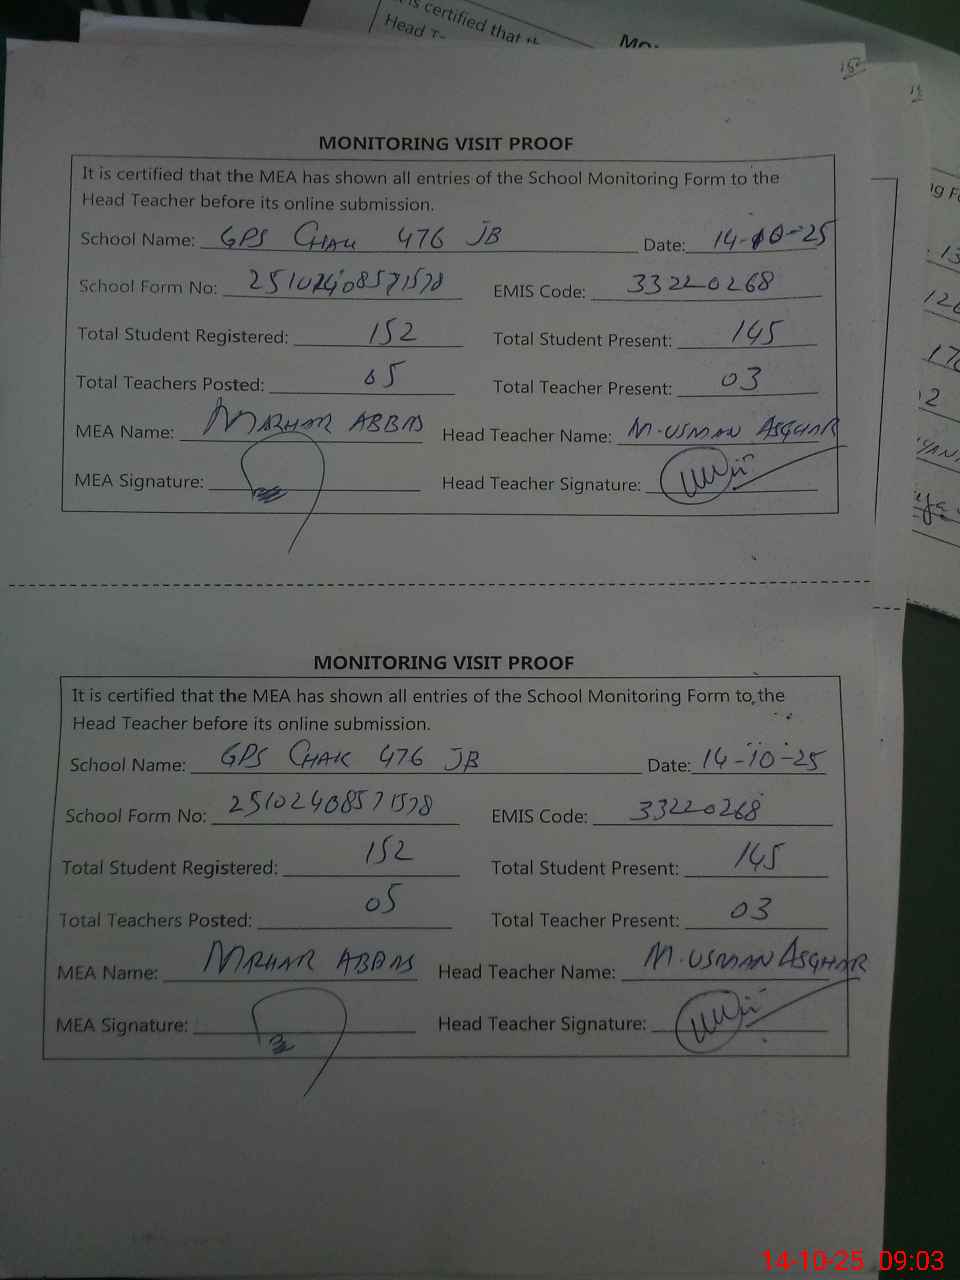 is certified that th
Head T
Mo
152
MONITORING VISIT PROOF
It is certified that the MEA has shown all entries of the School Monitoring Form to the
Head Teacher before its online submission.
School Name: GPS CHAK 476 JB Date: 14-10-25
School Form No: 25102408571578 EMIS Code: 33220268
Total Student Registered: 152 Total Student Present: 145
Total Teachers Posted: 05 Total Teacher Present: 03
MEA Name: MAZHAR ABBAS Head Teacher Name: M. USMAN ASGHAR
MEA Signature: Head Teacher Signature:
MONITORING VISIT PROOF
It is certified that the MEA has shown all entries of the School Monitoring Form to the
Head Teacher before its online submission.
School Name: GPS CHAK 476 JB Date: 14-10-25
School Form No: 25102408571578 EMIS Code: 33220268
Total Student Registered: 152 Total Student Present: 145
Total Teachers Posted: 05 Total Teacher Present: 03
MEA Name: MAZHAR ABBAS Head Teacher Name: M. USMAN ASGHAR
MEA Signature: Head Teacher Signature:
14-10-25 09:03